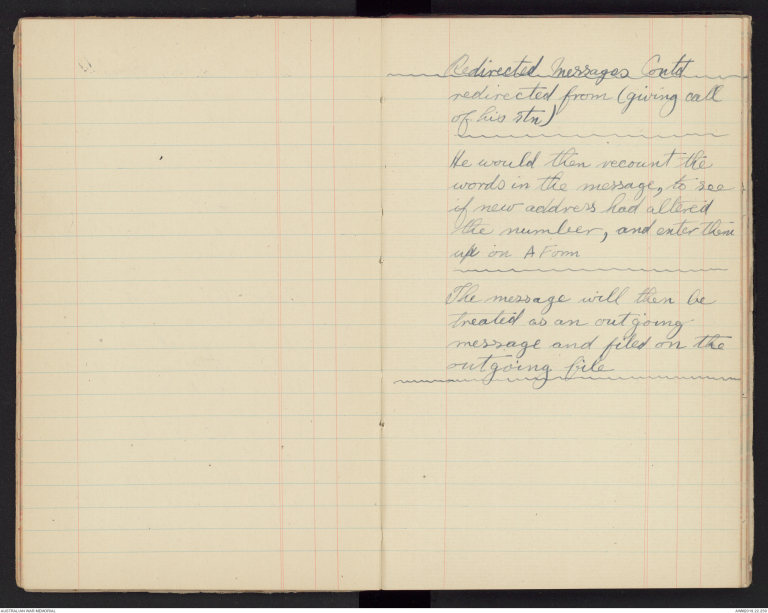 Redirected Messages Contd
redirected from (giving call
of his stn)
He would then recount the
words in the message, to see
if new address had altered
the number, and enter them
up on A Form
The message will then be
treated as an outgoing
message and filed on the
outgoing file
AUSTRALIAN WAR MEMORIAL